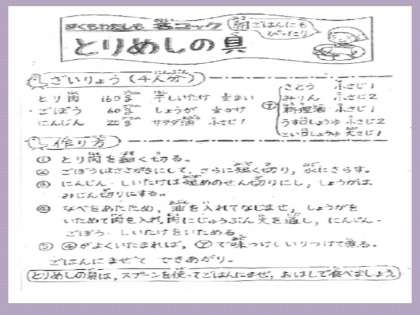 ぼくもわたしも 名コック
朝ごはんにも
ぴったり
とりめしの具
ざいりょう (4人分)
とり肉 160g 干しいたけ
ごぼう 60g しょうが
にんじん 20g サラダ油 小さじ1
さとう 小さじ1
みりん 小さじ2
料理酒 小さじ1
うす口しょうゆ 小さじ2
こい口しょうゆ 大さじ1
作り方
① とり肉を細く切る。
② ごぼうはささがきにして、さらに短く切り、水にさらす。
③ にんじん・しいたけは短めのせん切りにし、しょうがは
みじん切りにする。
④ なべをあたため、油を入れてなじませ、しょうがを
いためて肉を入れ、肉にじゅうぶん火を通し、にんじん・
ごぼう・しいたけをいためる。
⑤ ④がよくいたまれば、㋐で味つけし、いりつけて煮る。
ごはんにまぜて できあがり。
とりめしの具は、スプーンを使ってごはんにまぜ、おはしで食べましょう。